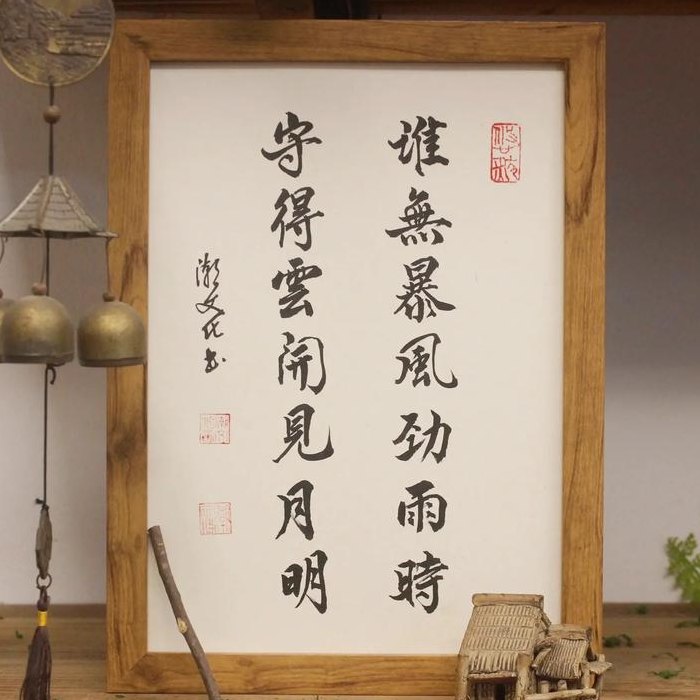 誰無暴風勁雨時
守得雲開見月明
潮文化书